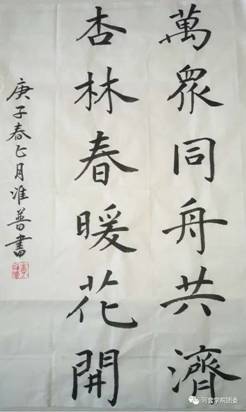 萬眾同舟共濟
杏林春暖花開
庚子春正月准普書